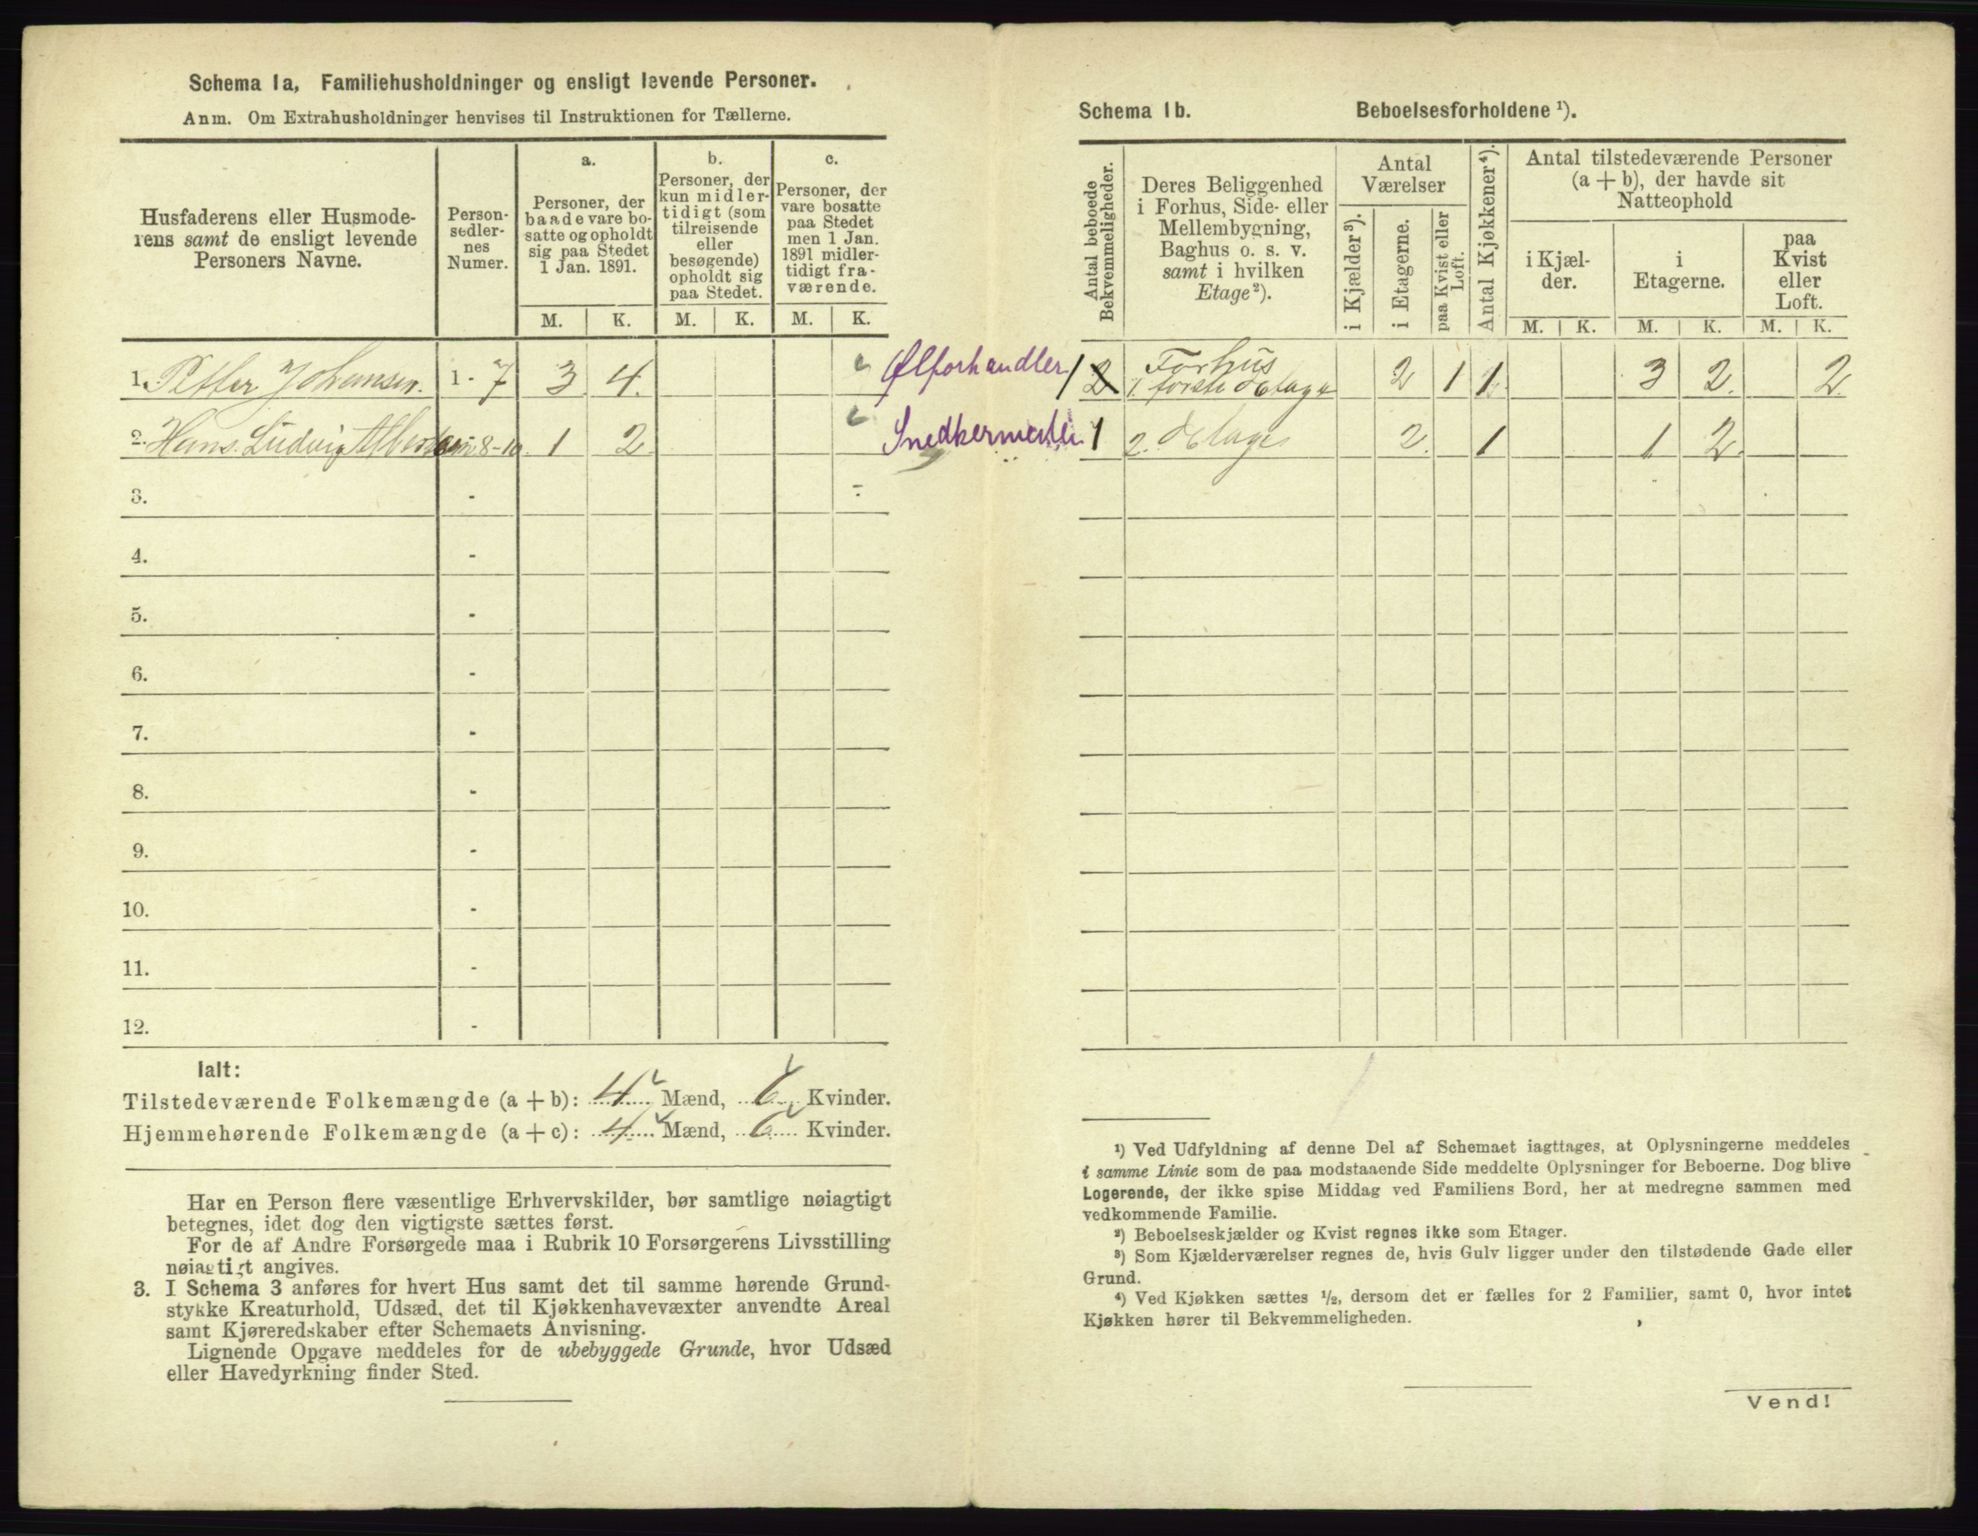 Schema 1a, Familiehusholdninger og ensligt levende Personer.
Anm. Om Extrahusholdninger henvises til Instruktionen for Tællerne.
Husfaderens eller Husmode-
rens samt de ensligt levende
Personers Navne.
Person-
sedler-
nes
Numer.
a.
Personer, der
baade vare bo-
satte og opholdt
sig paa Stedet
1 Jan. 1891.
b.
Personer, der
kun midler-
tidigt (som
tilreisende
eller
besøgende)
opholdt sig
paa Stedet.
c.
Personer, der
vare bosatte
paa Stedet
men 1 Jan.
1891 midler-
tidigt fra-
værende.
M. K. M. K. M. K.
1. Petter Johansen. 1 - 7 3 4.
2. Hans. Ludvig 8-10 1 2
3. -
4. -
5. -
6. -
7. -
8. -
9. -
10. -
11. -
12. -
Ialt:
Tilstedeværende Folkemængde (a + b): 4 Mænd, 6 Kvinder.
Hjemmehørende Folkemængde (a + c): 4 Mænd, 6 Kvinder.
Har en Person flere væsentlige Erhvervskilder, bør samtlige nøiagtigt
betegnes, idet dog den vigtigste sættes først.
For de af Andre Forsørgede maa i Rubrik 10 Forsørgerens Livsstilling
nøiagtigt angives.
3. I Schema 3 anføres for hvert Hus samt det til samme hørende Grund-
stykke Kreaturhold, Udsæd, det til Kjøkkenhavevæxter anvendte Areal
samt Kjøreredskaber efter Schemaets Anvisning.
Lignende Opgave meddeles for de ubebyggede Grunde, hvor Udsæd
eller Havedyrkning finder Sted.
Schema 1b. Beboelsesforholdene ¹).
Antal beboede
Bekvemmeligheder.
Deres Beliggenhed
i Forhus, Side- eller
Mellembygning,
Baghus o. s. v.
samt i hvilken
Etage²).
Antal
Værelser
i Kjælder³).
i Etagerne.
paa Kvist eller
Loft.
Antal Kjøkkener⁴).
Antal tilstedeværende Personer
(a + b), der havde sit
Natteophold
i Kjæl-
der.
i
Etagerne.
paa
Kvist
eller
Loft.
M. K. M. K. M. K.
Ølforhandler 1 2 Forhus
1. første Etage 2 1 1 3 2. 2.
Snedkermester 1 2. Etage 2. 1 1 2.
¹) Ved Udfyldning af denne Del af Schemaet iagttages, at Oplysningerne meddeles
i samme Linie som de paa modstaaende Side meddelte Oplysninger for Beboerne. Dog blive
Logerende, der ikke spise Middag ved Familiens Bord, her at medregne sammen med
vedkommende Familie.
²) Beboelseskjælder og Kvist regnes ikke som Etager.
³) Som Kjælderværelser regnes de, hvis Gulv ligger under den tilstødende Gade eller
Grund.
⁴) Ved Kjøkken sættes ½, dersom det er fælles for 2 Familier, samt 0, hvor intet
Kjøkken hører til Bekvemmeligheden.
Vend!